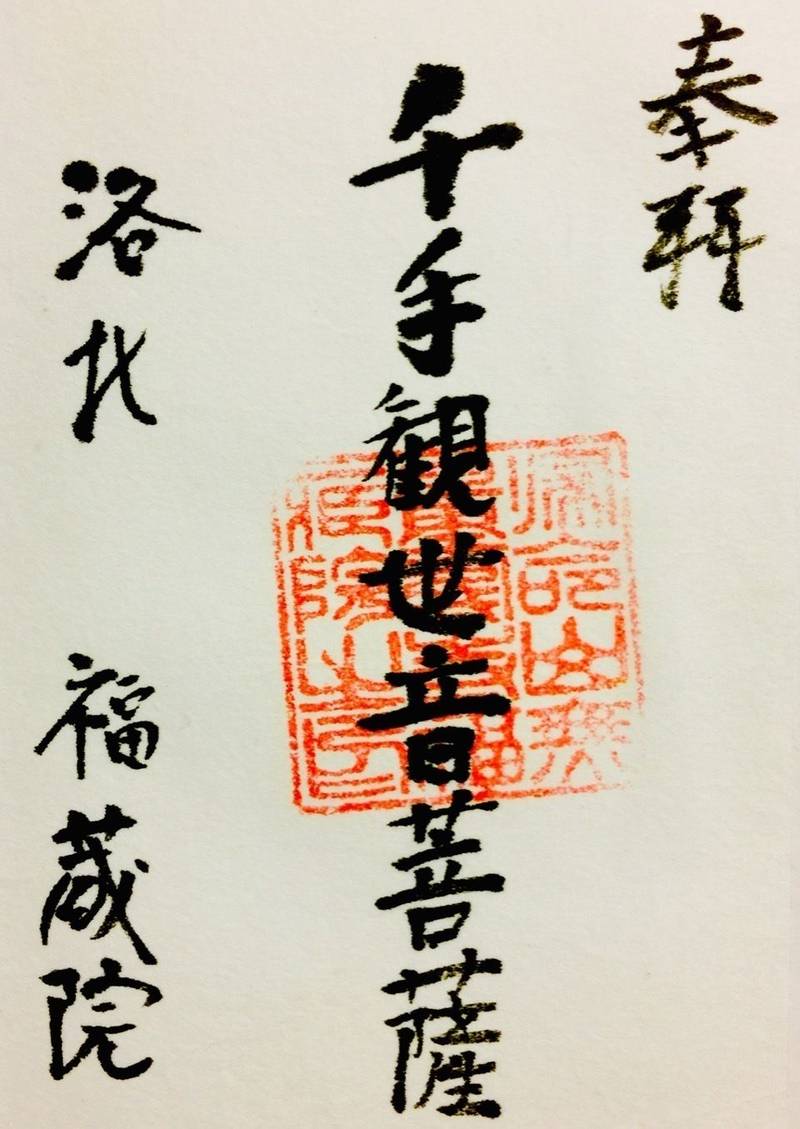 奉拝
千手観世音菩薩
洛北 福蔵院